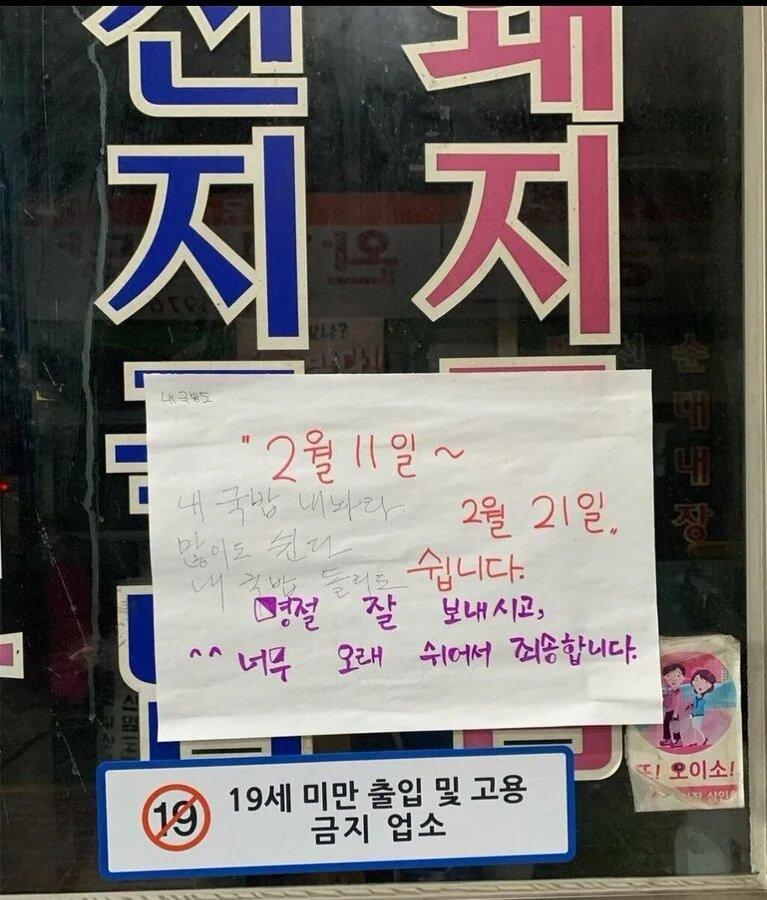 돼
지
지
내 국밥도
"2월 11일 ~
2월 21일"
쉽니다.
내 국밥 내놔라
많이도 쉰다
내 국밥 돌리도
명절 잘 보내시고,
^^ 너무 오래 쉬어서 죄송합니다.
순대내장
또! 오이소!
19
19세 미만 출입 및 고용
금지 업소